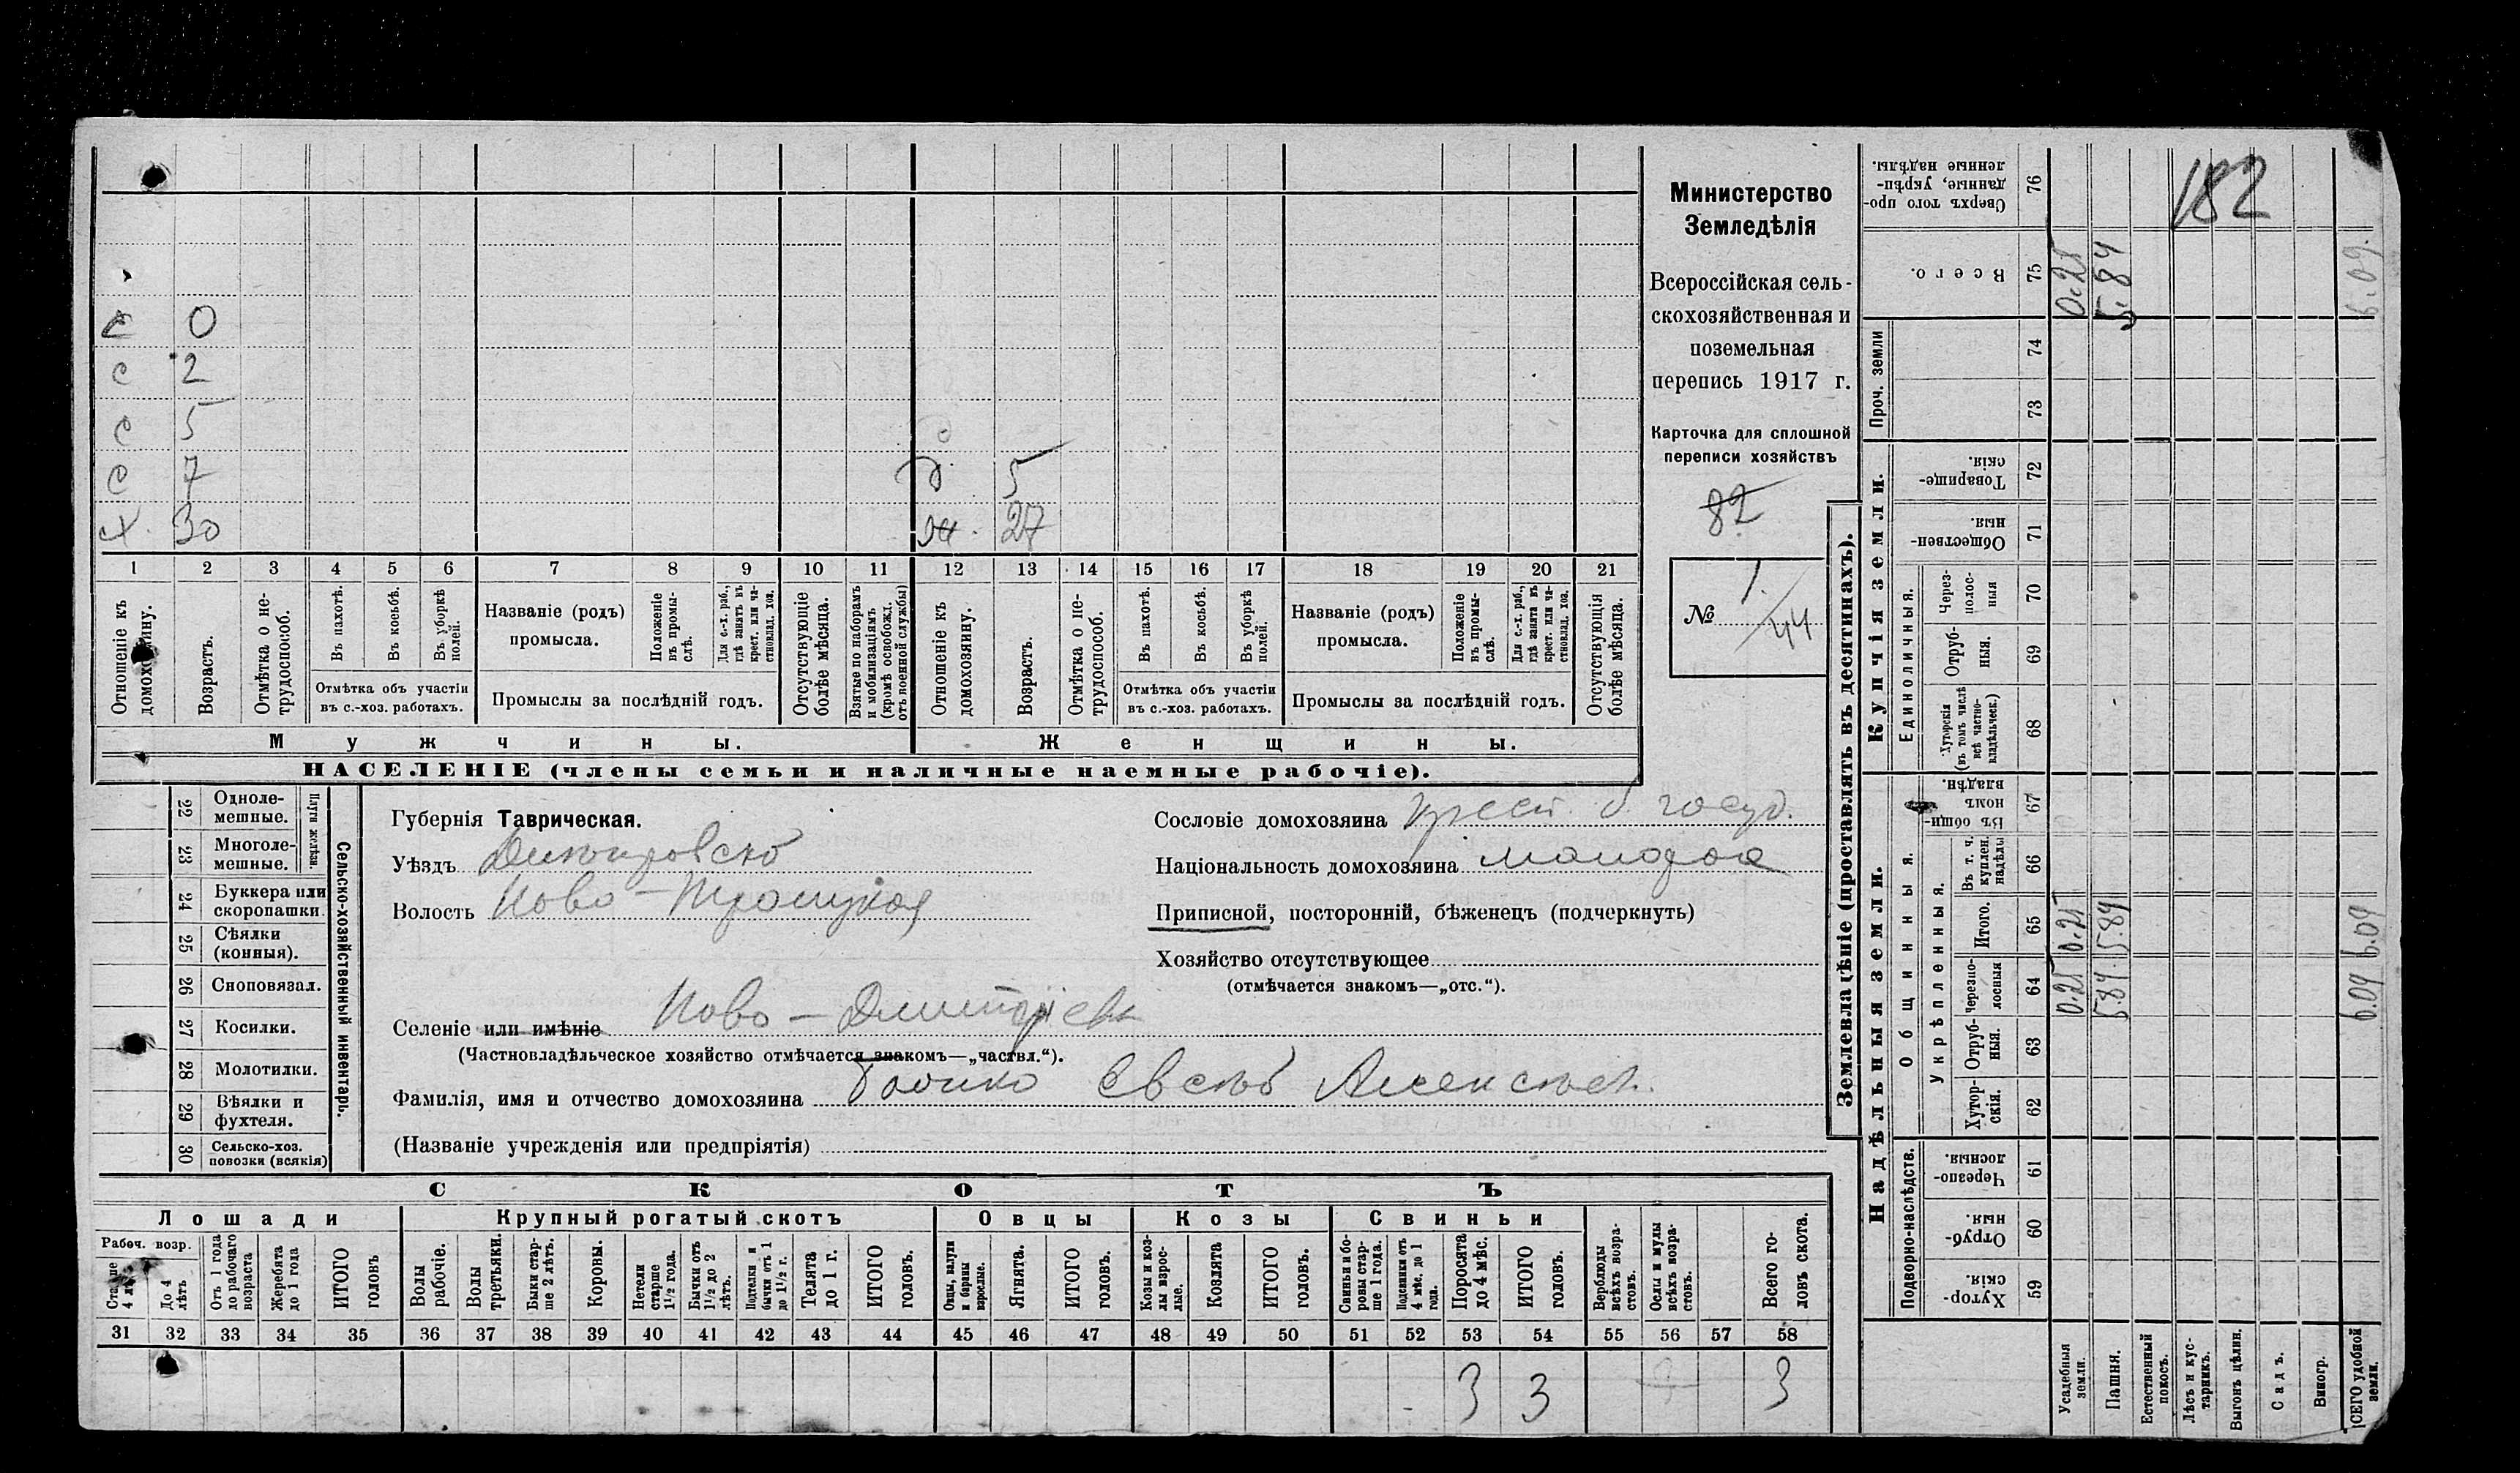 с 0
с 2
с 5
с 7
х. 30
д. 5
ж. 27
1 2 3 4 5 6 7 8 9 10 11 12 13 14 15 16 17 18 19 20 21
Отношеніе къ домохозяину.
Возрастъ.
Отмѣтка о не-трудоспособ.
Въ пахотѣ.
Въ косьбѣ.
Въ уборкѣ полей.
Отмѣтка объ участіи
въ с.-хоз. работахъ.
Названіе (родъ)
промысла.
Положеніе въ промы-слѣ.
Для с.-х. раб., гдѣ занятъ въ крест. или ча-стновлад. хоз.
Промыслы за послѣдній годъ.
Отсутствующіе болѣе мѣсяца.
Взятые по наборамъ и мобилизаціямъ (кромѣ освобожд. отъ военной службы)
Отношеніе къ домохозяину.
Возрастъ.
Отмѣтка о не-трудоспособ.
Въ пахотѣ.
Въ косьбѣ.
Въ уборкѣ полей.
Отмѣтка объ участіи
въ с.-хоз. работахъ.
Названіе (родъ)
промысла.
Положеніе въ промы-слѣ.
Для с.-х. раб., гдѣ занятъ въ крест. или ча-стновлад. хоз.
Промыслы за послѣдній годъ.
Отсутствующія болѣе мѣсяца.
Мужчины.
Женщины.
НАСЕЛЕНІЕ (члены семьи и наличные наемные рабочіе).
Министерство
Земледѣлія
Всероссійская сель-
скохозяйственная и
поземельная
перепись 1917 г.
Карточка для сплошной
переписи хозяйствъ
82
№ 1/44
22 Одноле-мешные.
23 Многоле-мешные.
Плуги желѣзн.
24 Буккера или скоропашки.
25 Сѣялки (конныя).
26 Сноповязал.
27 Косилки.
28 Молотилки.
29 Вѣялки и фухтеля.
30 Сельско-хоз. повозки (всякія)
Сельско-хозяйственный инвентарь.
Губернія Таврическая.
Уѣздъ Днѣпровскій
Волость Ново-Троицкая
Селеніе или имѣніе Ново-Дмитріевк
(Частновладѣльческое хозяйство отмѣчается знакомъ—„частвл.“).
Фамилія, имя и отчество домохозяина Евсѣй Алексѣев.
(Названіе учрежденія или предпріятія)
Сословіе домохозяина крест. б. госуд.
Національность домохозяина малорос
Приписной, посторонній, бѣженец (подчеркнуть)
Хозяйство отсутствующее
(отмѣчается знакомъ—„отс.“).
СКОТЪ
Лошади
Крупный рогатый скотъ
Овцы
Козы
Свиньи
Рабоч. возр.
Старше 4 лѣтъ
До 4 лѣтъ
Отъ 1 года до рабочаго возраста
Жеребята до 1 года
ИТОГО головъ
Волы рабочіе.
Волы третьяки.
Быки стар-ше 2 лѣтъ.
Коровы.
Нетели старше 1½ года.
Бычки отъ 1½ до 2 лѣтъ.
Подтелки и бычки отъ 1 до 1½ г.
Телята до 1 г.
ИТОГО головъ.
Овцы, валухи и бараны взрослые.
Ягнята.
ИТОГО головъ.
Козы и коз-лы взрос-лые.
Козлята
ИТОГО головъ.
Свиньи и бо-ровы стар-ше 1 года.
Подсвинки отъ 4 мѣс. до 1 года.
Поросята до 4 мѣс.
ИТОГО головъ.
Верблюды всѣхъ возра-стовъ.
Ослы и мулы всѣхъ возра-стовъ.
Всего го-ловъ скота.
31 32 33 34 35 36 37 38 39 40 41 42 43 44 45 46 47 48 49 50 51 52 53 54 55 56 57 58
3 3 3
Землевладѣніе (проставлять въ десятинахъ).
182
Сверхъ того про-данные, укрѣп-ленные надѣлы. 76
Всего. 75 0.25 5.84 6.09.
Проч. земли
74
73
Купчія земли.
Товарище-скія. 72
Обществен-ныя. 71
Единоличныя.
Через-полос-ныя 70
Отруб-ныя. 69
Хуторскія (въ томъ числѣ всѣ частно-владѣльческ.) 68
Надѣльныя земли.
Общинныя.
Въ общин-номъ владѣн. 67
Укрѣпленныя.
Въ т. ч. куплен. надѣлы 66
Итого. 65 0.25 5.84 6.09
Черезпо-лосныя 64 0.25 5.84 6.09
Отруб-ныя. 63
Хутор-скія. 62
Подворно-наслѣдств.
Черезпо-лосныя. 61
Отруб-ныя. 60
Хутор-скія. 59
Усадебныя земли.
Пашня.
Естественный покосъ.
Лѣсъ и кус-тарникъ.
Выгонъ цѣлин.
Садъ.
Виногр.
ВСЕГО удобной земли.